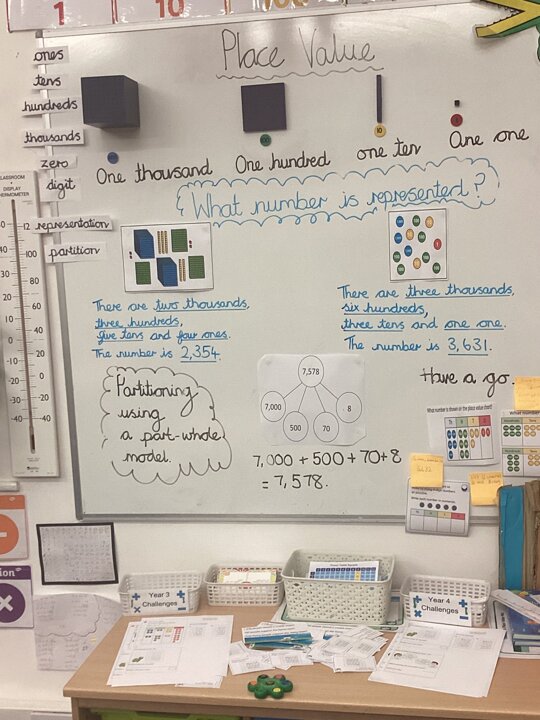 1 10 100
Place Value
ones
tens
hundreds
thousands
zero
digit
representation
partition
One thousand One hundred one ten One one
What number is represented?
There are two thousands,
three hundreds,
five tens and four ones.
The number is 2,354.
There are three thousands,
six hundreds,
three tens and one one.
The number is 3,631.
Partitioning
using
a part-whole
model.
7,578
7,000 500 70 8
7,000 + 500 + 70 + 8
= 7,578.
Have a go.
What number is shown on the place value chart?
What number
CLASSROOM
DISPLAY
THERMOMETER
Year 3
Challenges
Year 4
Challenges